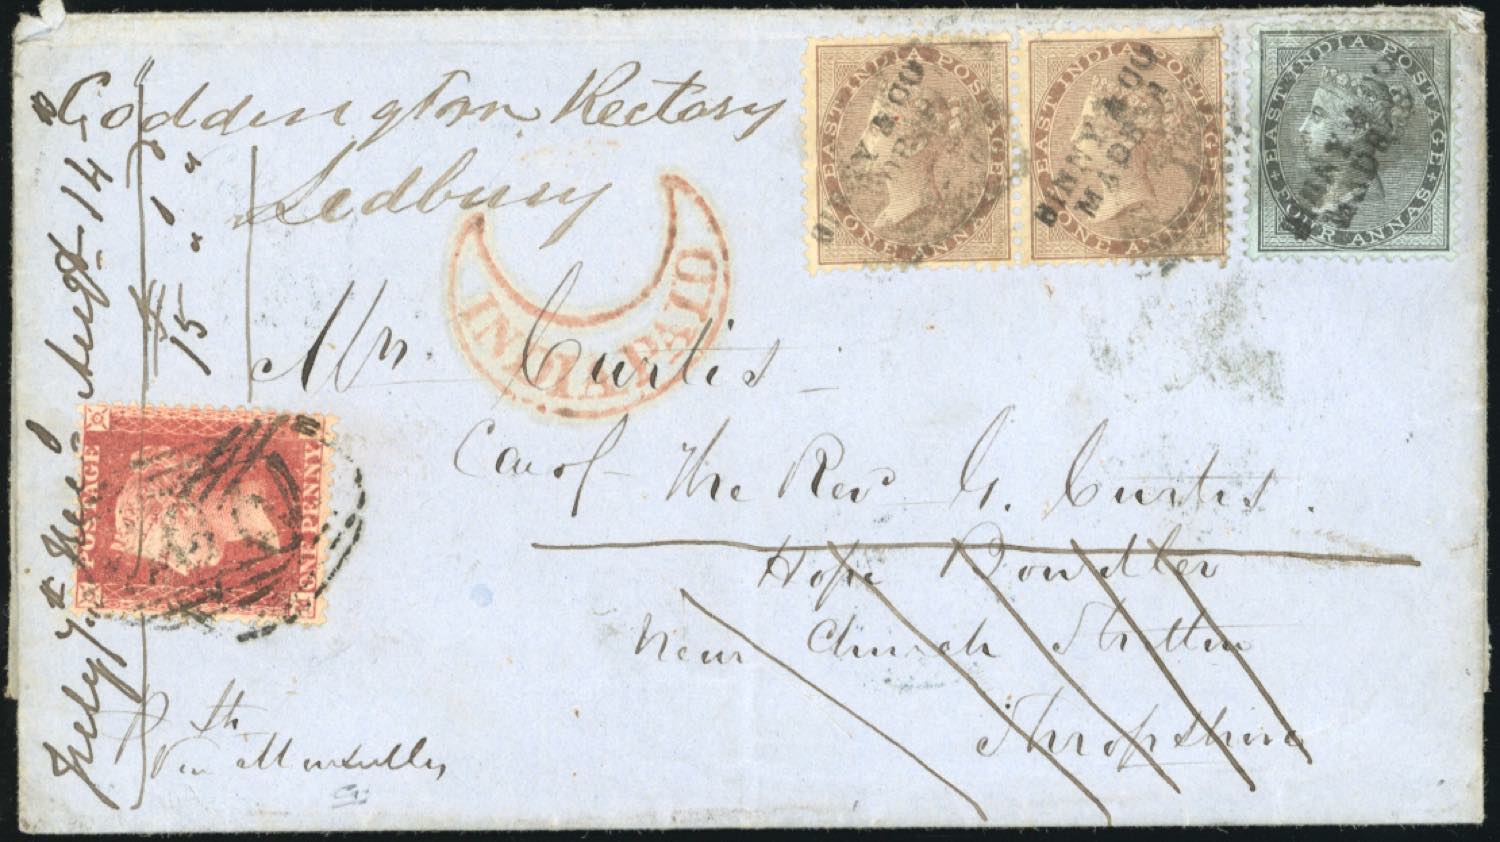 Coddington Rectory
Ledbury
EAST INDIA POSTAGE
ONE ANNA
BINNY & CO
MADRAS
EAST INDIA POSTAGE
ONE ANNA
BINNY & CO
MADRAS
EAST INDIA POSTAGE
FOUR ANNAS
BINNY & CO
MADRAS
INDIA PAID
Mr. Curtis
Care of The Revd G. Curtis.
Hope Bowdler
Near Church Stretton
Shropshire
POSTAGE
ONE PENNY
Via Marseilles
July 7
14
" 1 "
15